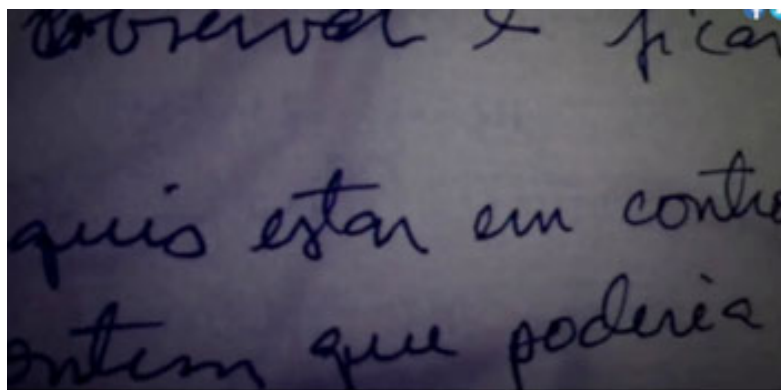 observar e ficar
quis estar em contr
ontem que poderia